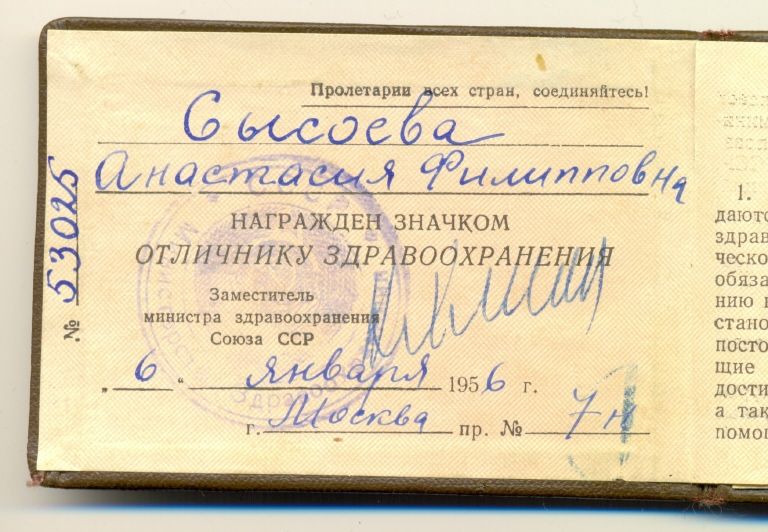 Пролетарии всех стран, соединяйтесь!
Сысоева
Анастасия Филипповна
НАГРАЖДЕН ЗНАЧКОМ
ОТЛИЧНИКУ ЗДРАВООХРАНЕНИЯ
Заместитель
министра здравоохранения
Союза ССР
„6“ января 1956 г.
г. Москва пр. № 7н
№ 53025
1.
даютс
здрав
ческо
обяза
нию
стано
посто
щие
дости
а так
помог